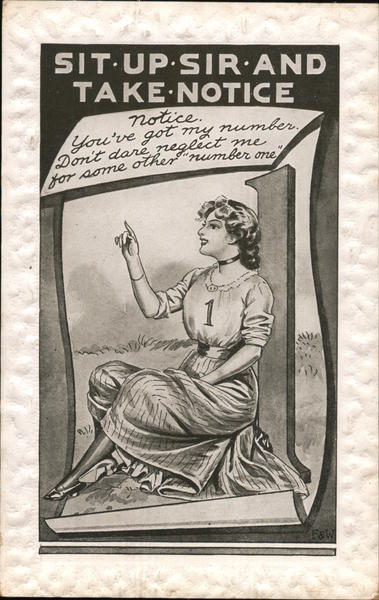 SIT·UP·SIR·AND
TAKE·NOTICE
Notice.
You've got my number.
Don't dare neglect me
for some other "number one"
1
F&W